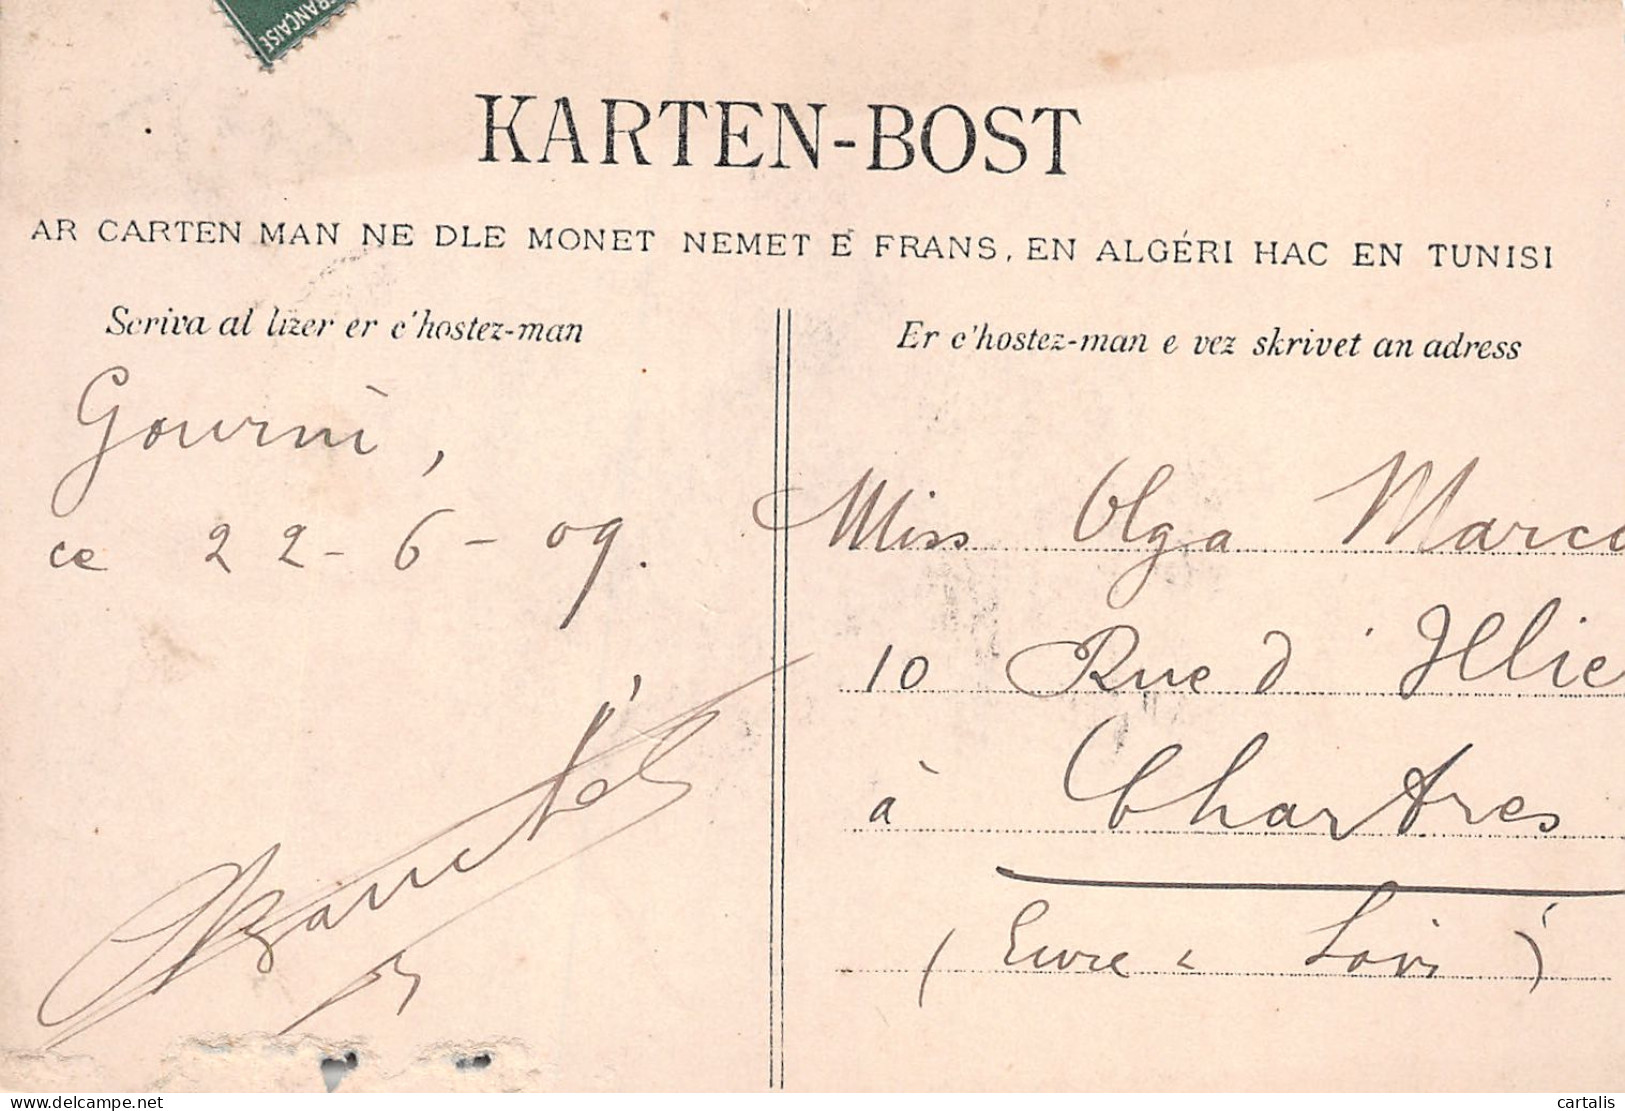 FRANÇAISE
KARTEN-BOST
AR CARTEN MAN NE DLE MONET NEMET E FRANS, EN ALGÉRI HAC EN TUNISI
Scriva al lizer er c'hostez-man
Er c'hostez-man e vez skrivet an adress
Gourni,
ce 22-6-09.
Miss Olga Marco
10 Rue d'Illie
à Chartres
(Eure & Loir)
delcampe.net
cartalis